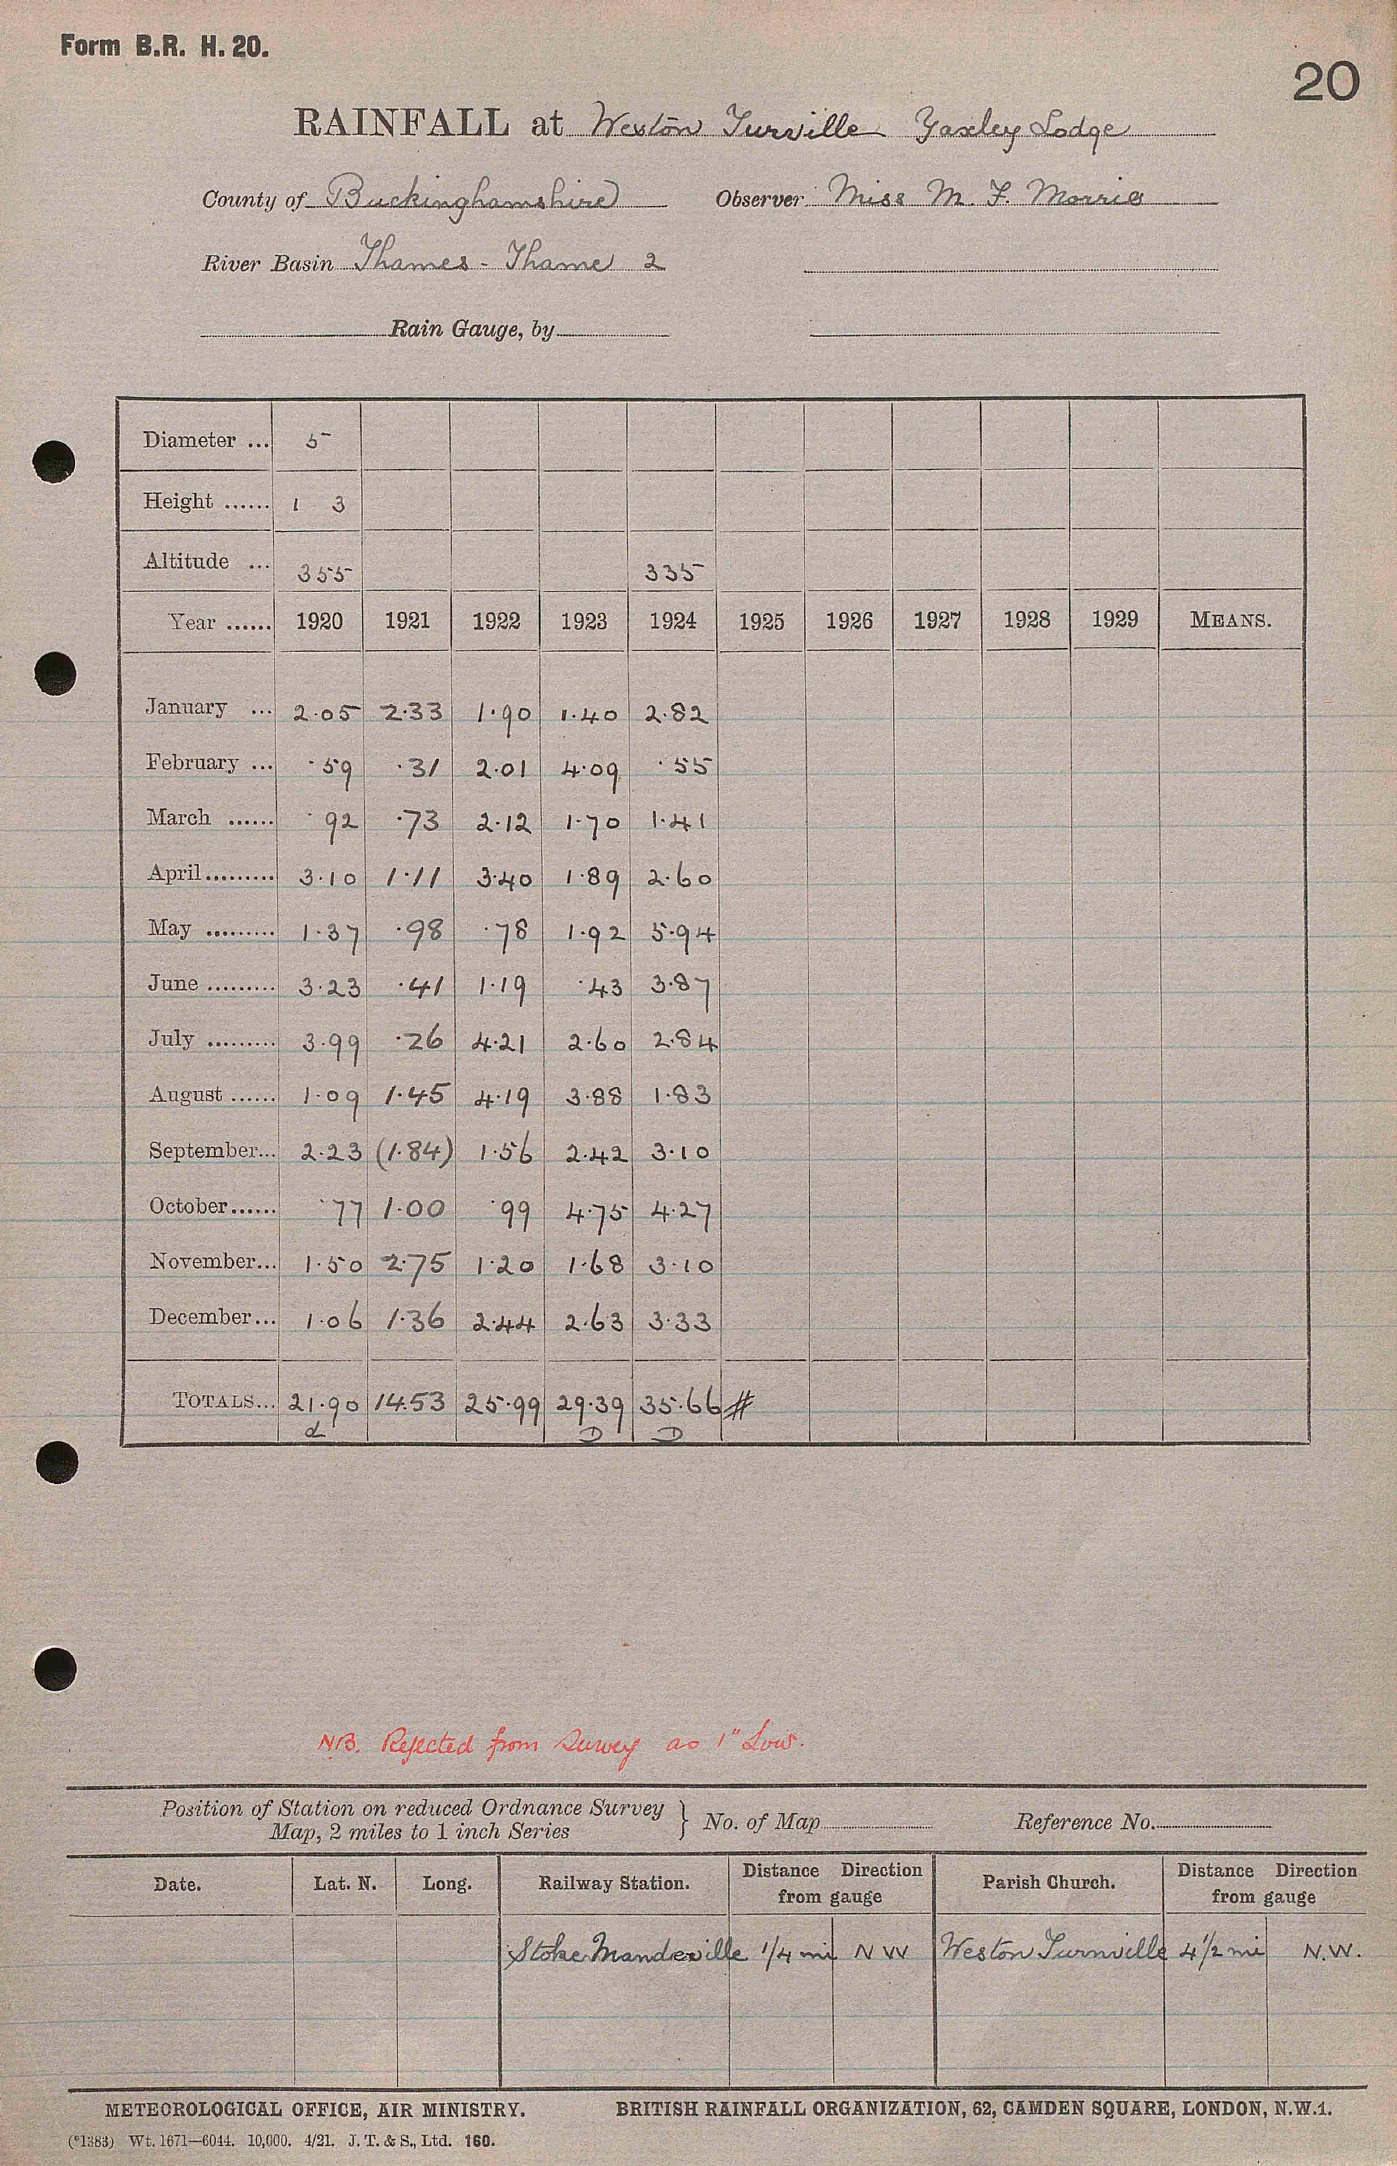 Form B.R. H. 20.
20
RAINFALL at Weston Turville Yaxley Lodge
County of Buckinghamshire Observer Miss M. F. Morris
River Basin Thames - Thame 2
Rain Gauge, by
Diameter ... 5
Height ...... 1 3
Altitude ... 355 335
Year ...... 1920 1921 1922 1923 1924 1925 1926 1927 1928 1929 MEANS.
January ... 2.05 2.33 1.90 1.40 2.82
February ... .59 .31 2.01 4.09 .55
March ...... .92 .73 2.12 1.70 1.41
April ......... 3.10 1.11 3.40 1.89 2.60
May ......... 1.37 .98 .78 1.92 5.94
June ......... 3.23 .41 1.19 .43 3.87
July ......... 3.99 .26 4.21 2.60 2.84
August ...... 1.09 1.45 4.19 3.88 1.83
September... 2.23 (1.84) 1.56 2.42 3.10
October...... .77 1.00 .99 4.75 4.27
November... 1.50 2.75 1.20 1.68 3.10
December... 1.06 1.36 2.44 2.63 3.33
TOTALS... 21.90 14.53 25.99 29.39 35.66 #
d D D
NB. Rejected from Survey as 1" Low.
Position of Station on reduced Ordnance Survey
Map, 2 miles to 1 inch Series } No. of Map Reference No.
Date. Lat. N. Long. Railway Station. Distance Direction from gauge Parish Church. Distance Direction from gauge
Stoke Mandeville 1/4 mi N W Weston Turnville 4 1/2 mi N.W.
METEOROLOGICAL OFFICE, AIR MINISTRY. BRITISH RAINFALL ORGANIZATION, 62, CAMDEN SQUARE, LONDON, N.W.1.
(*1383) Wt. 1671—6044. 10,000. 4/21. J. T. & S., Ltd. 160.